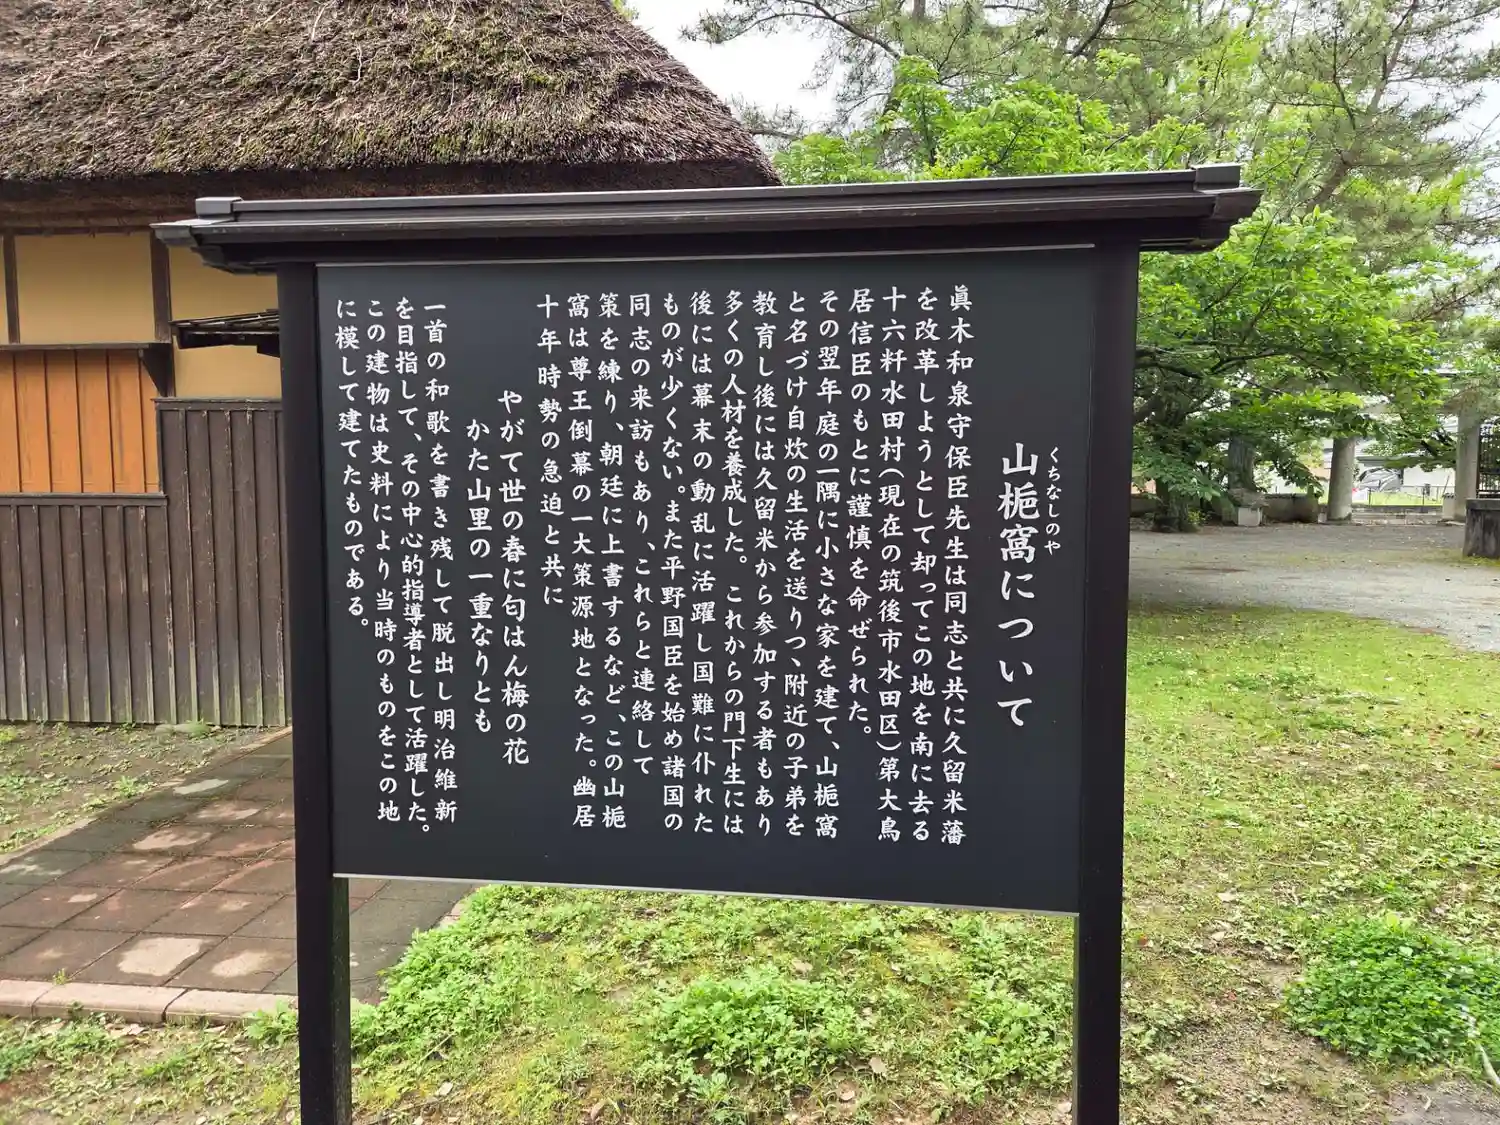 くちなしのや
山梔窩について
眞木和泉守保臣先生は同志と共に久留米藩
を改革しようとして却ってこの地を南に去る
十六粁水田村(現在の筑後市水田区)第大鳥
居信臣のもとに謹慎を命ぜられた。
その翌年庭の一隅に小さな家を建て、山梔窩
と名づけ自炊の生活を送りつ、附近の子弟を
教育し後には久留米から参加する者もあり
多くの人材を養成した。これからの門下生には
後には幕末の動乱に活躍し国難に仆れた
ものが少くない。また平野国臣を始め諸国の
同志の来訪もあり、これらと連絡して
策を練り、朝廷に上書するなど、この山梔
窩は尊王倒幕の一大策源地となった。幽居
十年時勢の急迫と共に
やがて世の春に匂はん梅の花
かた山里の一重なりとも
一首の和歌を書き残して脱出し明治維新
を目指して、その中心的指導者として活躍した。
この建物は史料により当時のものをこの地
に模して建てたものである。